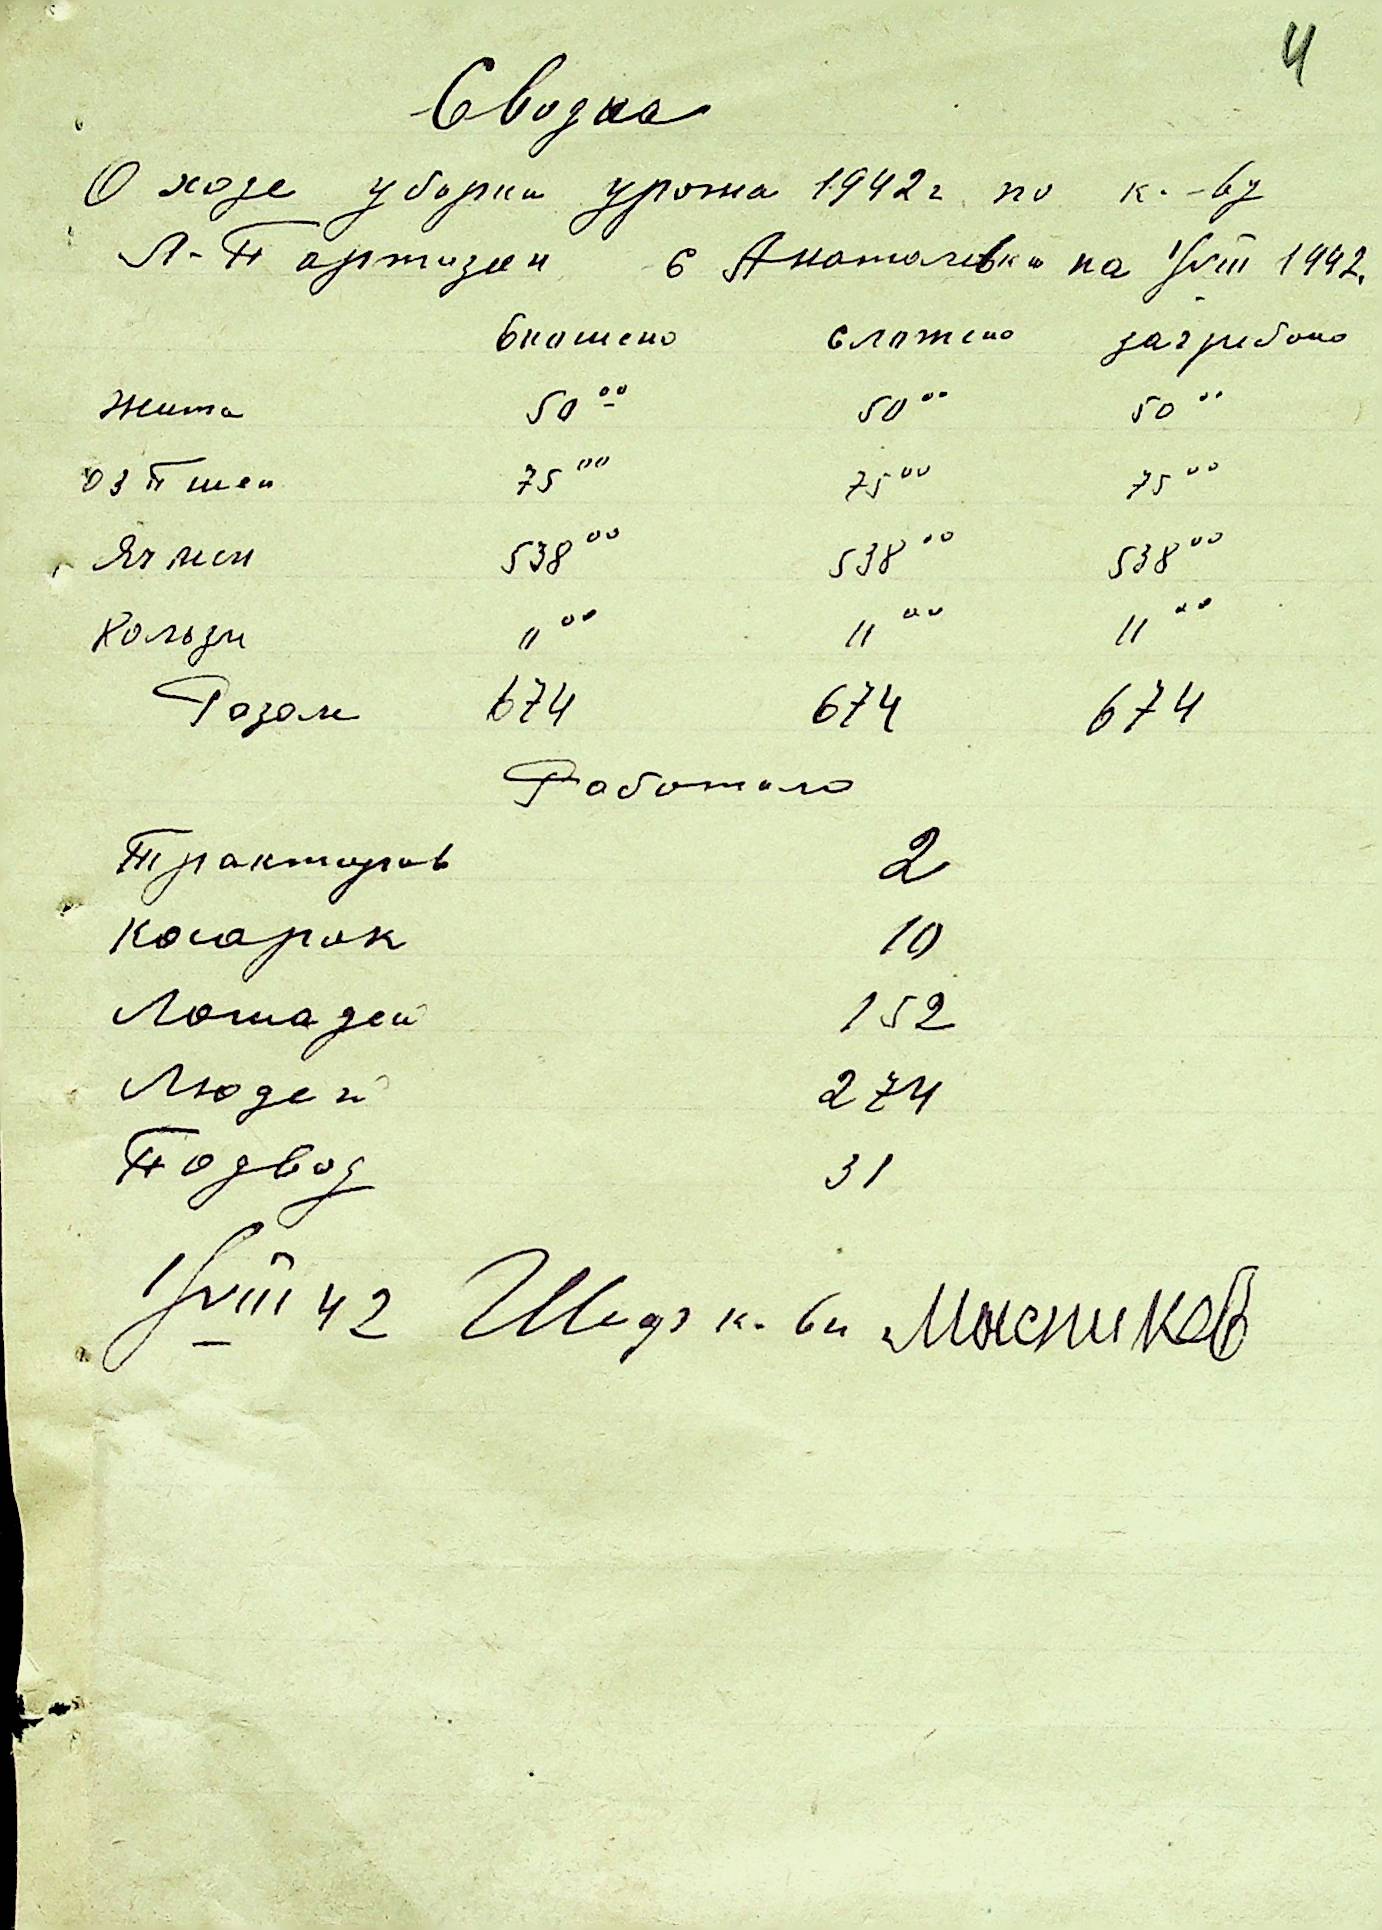 4
Сводка
О ходе уборки урожа 1942 г по к-ву
Л-Партизан с Анатолевки на 1/VIII 1942.
скошено сложено загребоно
Жита 50 00 50 00 50 00
Оз Пшен 75 00 75 00 75 00
Ячмен 538 00 538 00 538 00
Кользи 11 00 11 00 11 00
Разом 674 674 674
Работало
Тракторов 2
Косарок 10
Лошадей 152
Людей 274
Подвод 31
1/VIII 42 к-ви Мысников